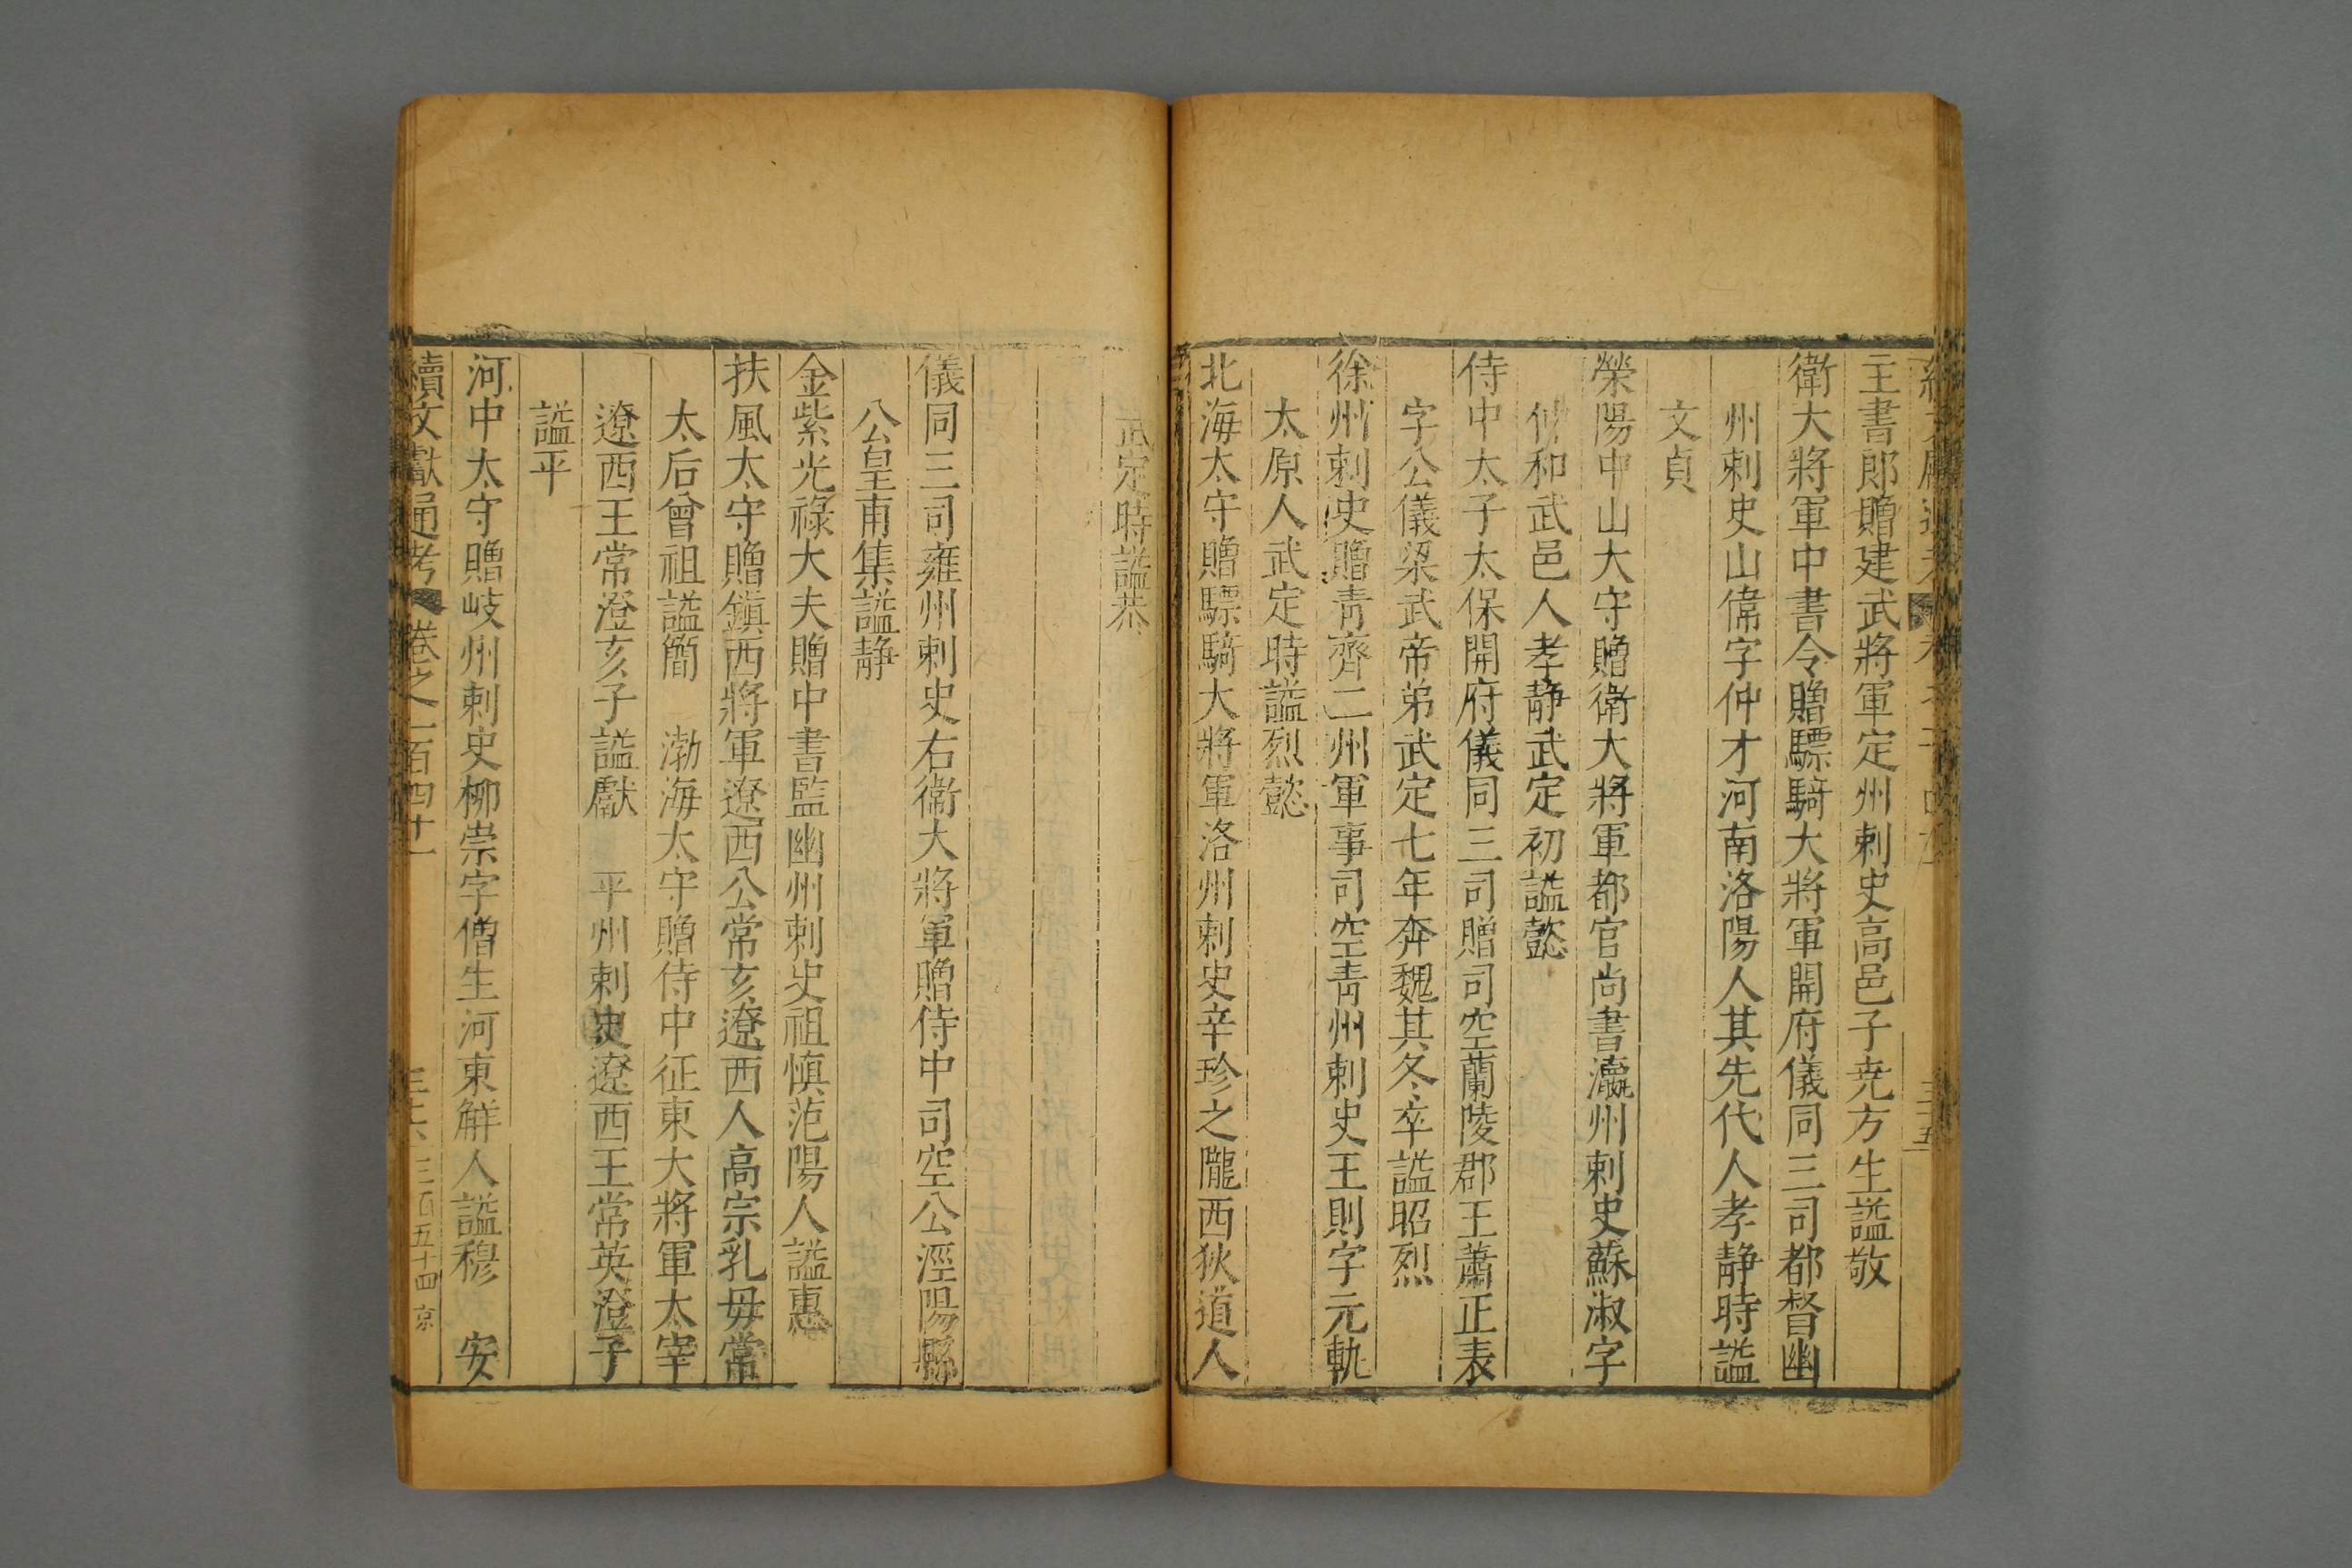 主書郎贈建武將軍定州刺史高邑子尭方生謚敬
衛大將軍中書令贈驃騎大將軍開府儀同三司都督幽
州刺史山偉字仲才河南洛陽人其先代人孝靜時謚
文貞
滎陽中山大守贈衛大將軍都官尚書瀛州刺史蘇淑字
仲和武邑人孝静武定初謚懿
侍中太子太保開府儀同三司贈司空蘭陵郡王蕭正表
字公儀梁武帝弟武定七年奔魏其冬卒謚昭烈
徐州刺史贈青齊二州軍事司空青州刺史王則字元軌
太原人武定時謚烈懿
北海太守贈驃騎大將軍洛州刺史辛珍之隴西狄道人
武定時謚恭
儀同三司雍州刺史右衞大將軍贈侍中司空公涇陽縣
公皇甫集謚静
金紫光祿大夫贈中書監幽州刺史祖慎范陽人謚惠
扶風太守贈鎮西將軍遼西公常亥遼西人高宗乳母常
太后曾祖謚簡 渤海太守贈侍中征東大將軍太宰
遼西王常澄亥子謚獻 平州刺史遼西王常英澄子
謚平
河中太守贈岐州刺史柳崇字僧生河東解人謚穆 安
續文獻通考 卷之一百四十一 三百五十四 京